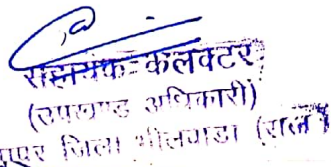 सहायक-कलक्टर
(उपखण्ड अधिकारी)
जिला भीलवाडा (राज